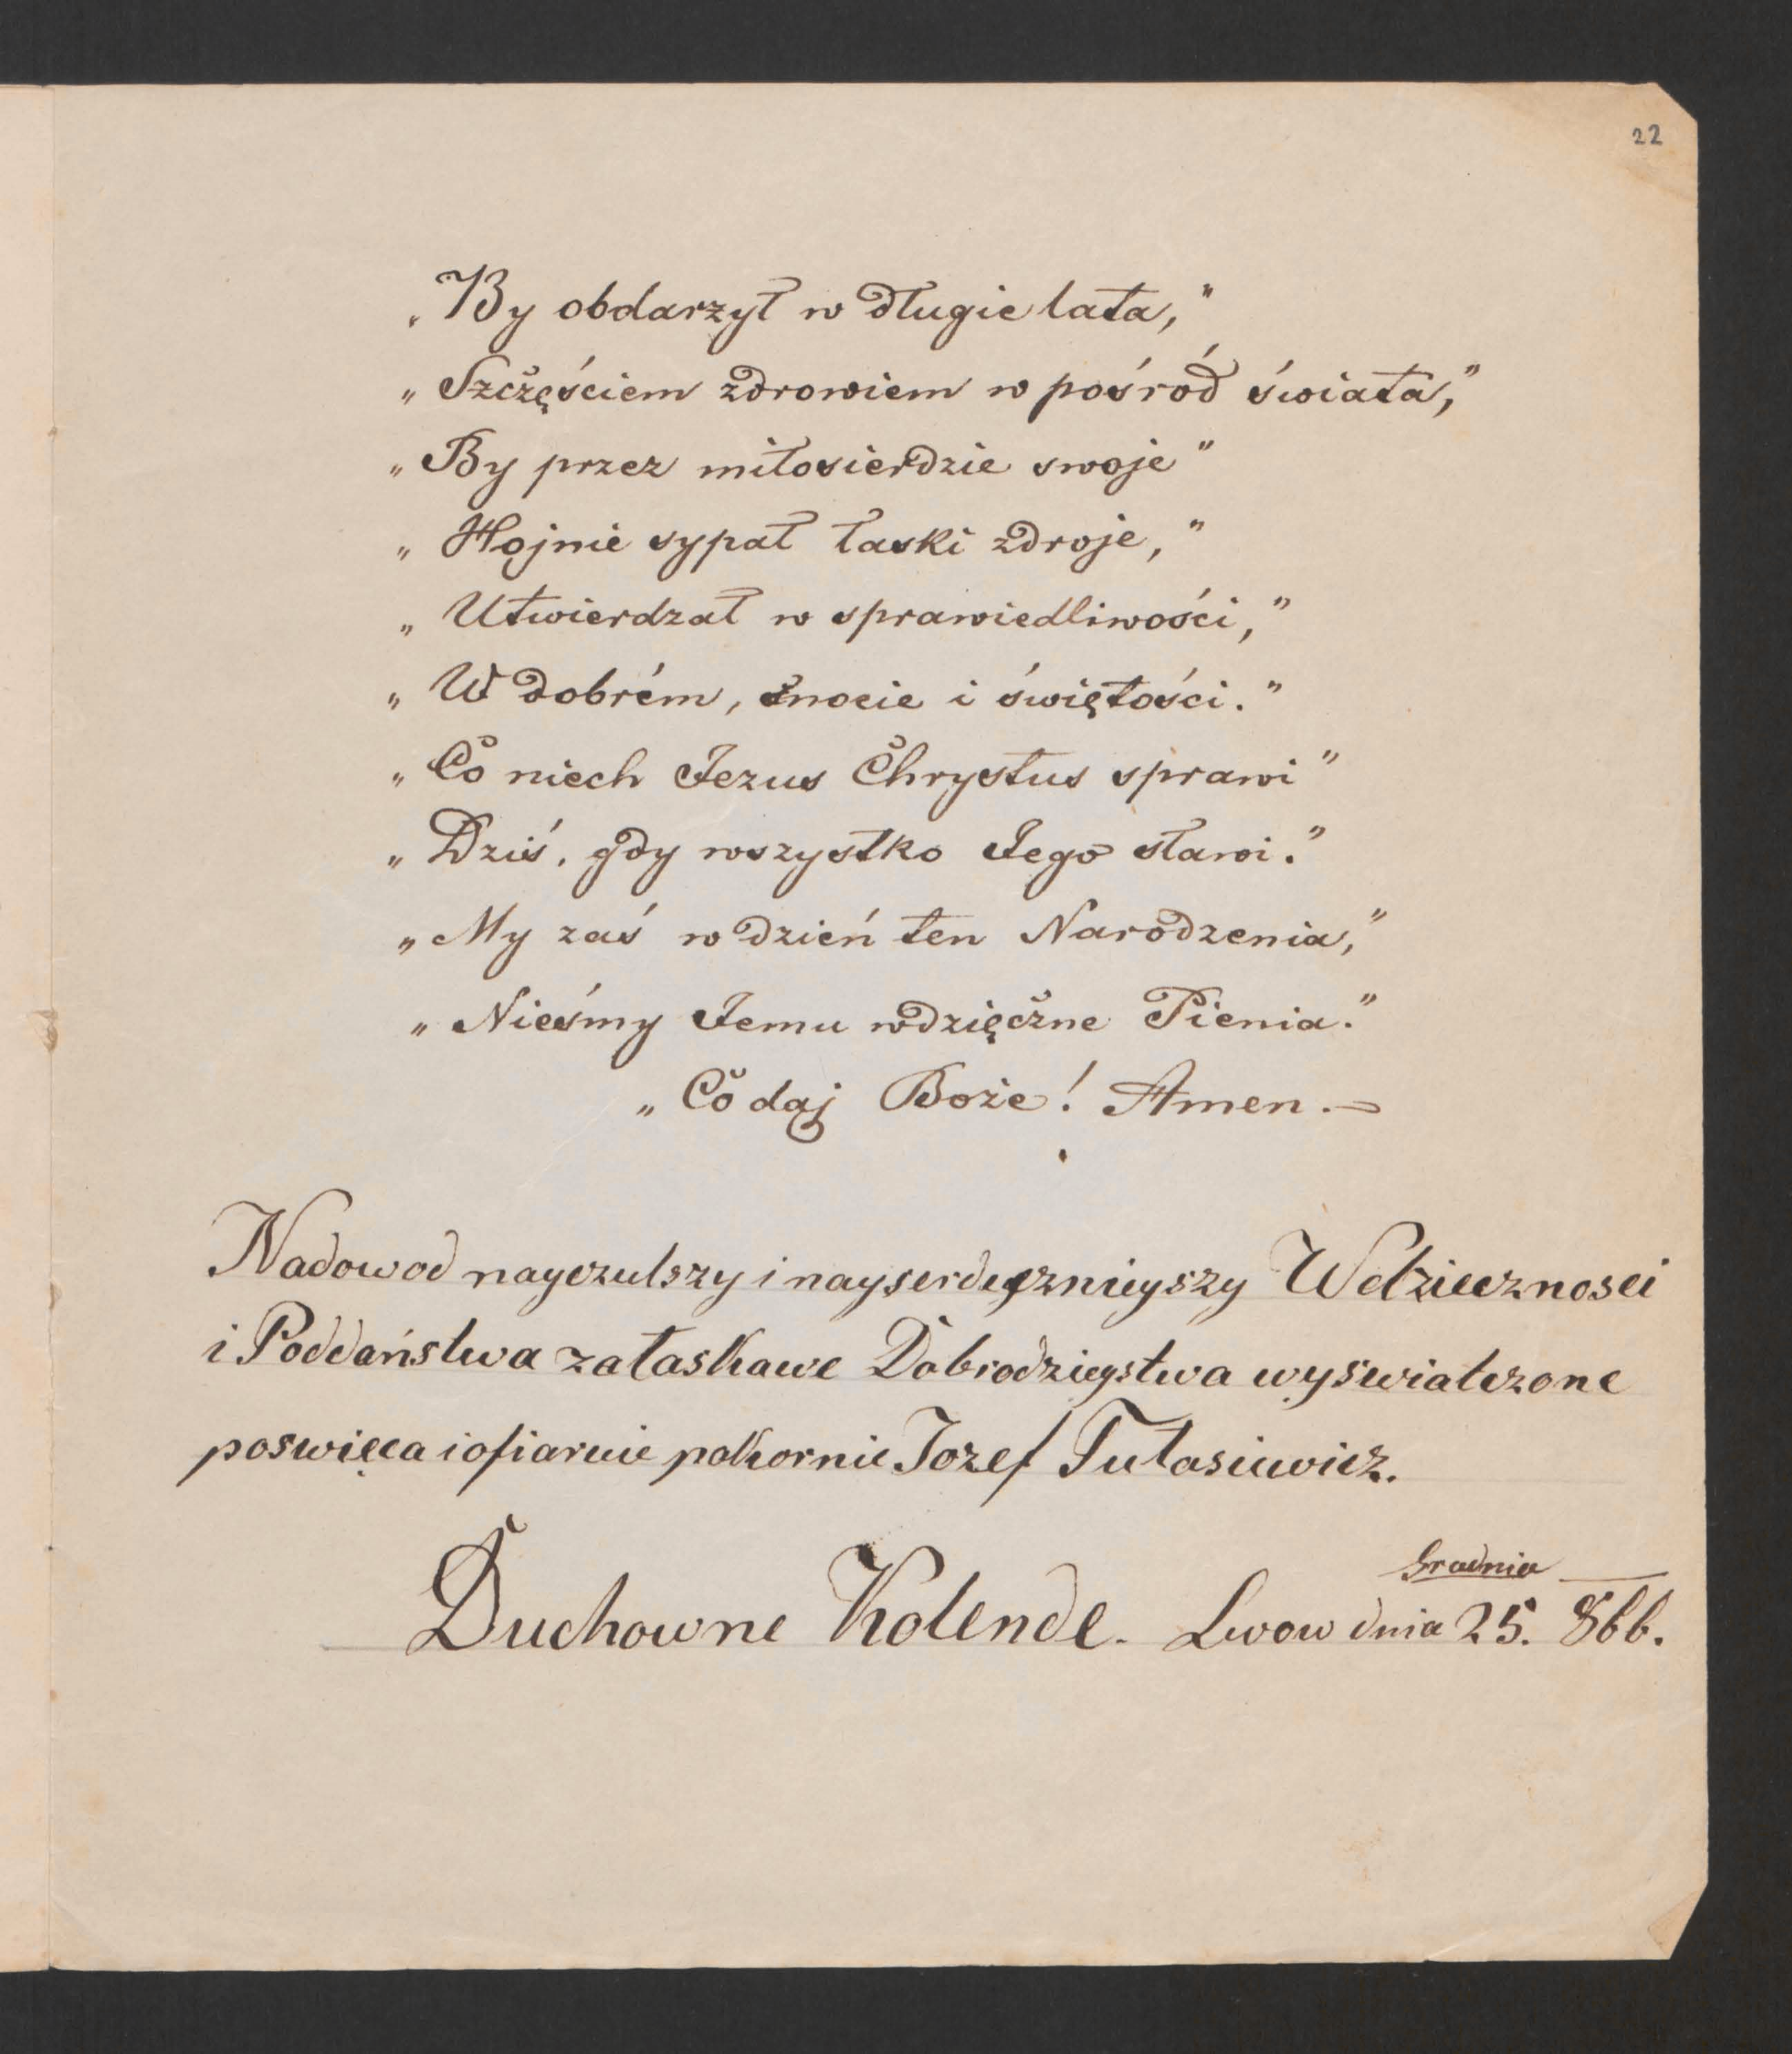 22
„By obdarzył w długie lata,”
„Szczęściem zdrowiem w pośród świata,”
„By przez miłosierdzie swoje”
„Hojnie sypał łaski zdroje,”
„Utwierdzał w sprawiedliwości,”
„W dobrém, cnocie i świętości.”
„Co niech Jezus Chrystus sprawi”
„Dziś, gdy wszystko Jego sławi.”
„My zaś w dzień ten Narodzenia,”
„Nieśmy Jemu wdzięczne Pienia.”
„Co daj Boże! Amen.—
Nadowod nayczulszy i nayserdecznieyszy Wdziecznosci
i Poddaństwa załaskawe Dobrodzieystwa wyswiatczone
poswięca i ofiaruie pokornie Jozef Tułasiewicz.
Duchowne Kolende. Lwow dnia 25. Grudnia 866.